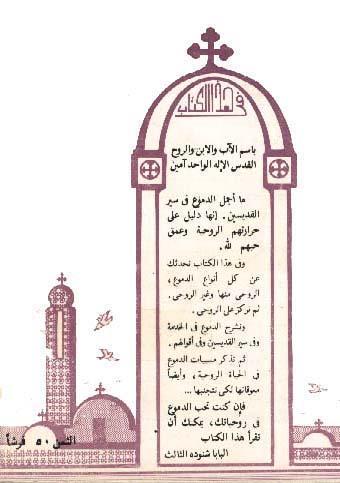 فى هذا الكتاب
باسم الآب والابن والروح
القدس الإله الواحد آمين
ما أجمل الدموع فى سير
القديسين . إنها دليل على
حرارتهم الروحية وعمق
حبهم لله .
وفى هذا الكتاب نحدثك
عن كل أنواع الدموع ،
الروحى منها وغير الروحى .
ثم نركز على الروحى .
ونشرح الدموع فى الخدمة
وفى سير القديسين وفى أقوالهم .
ثم نذكر مسببات الدموع
فى الحياة الروحية ، وأيضاً
معوقاتها لكى نتجنبها ...
فإن كنت تحب الدموع
فى روحياتك ، يمكنك أن
تقرأ هذا الكتاب
البابا شنوده الثالث
الثمن ٥٠ قرشاً